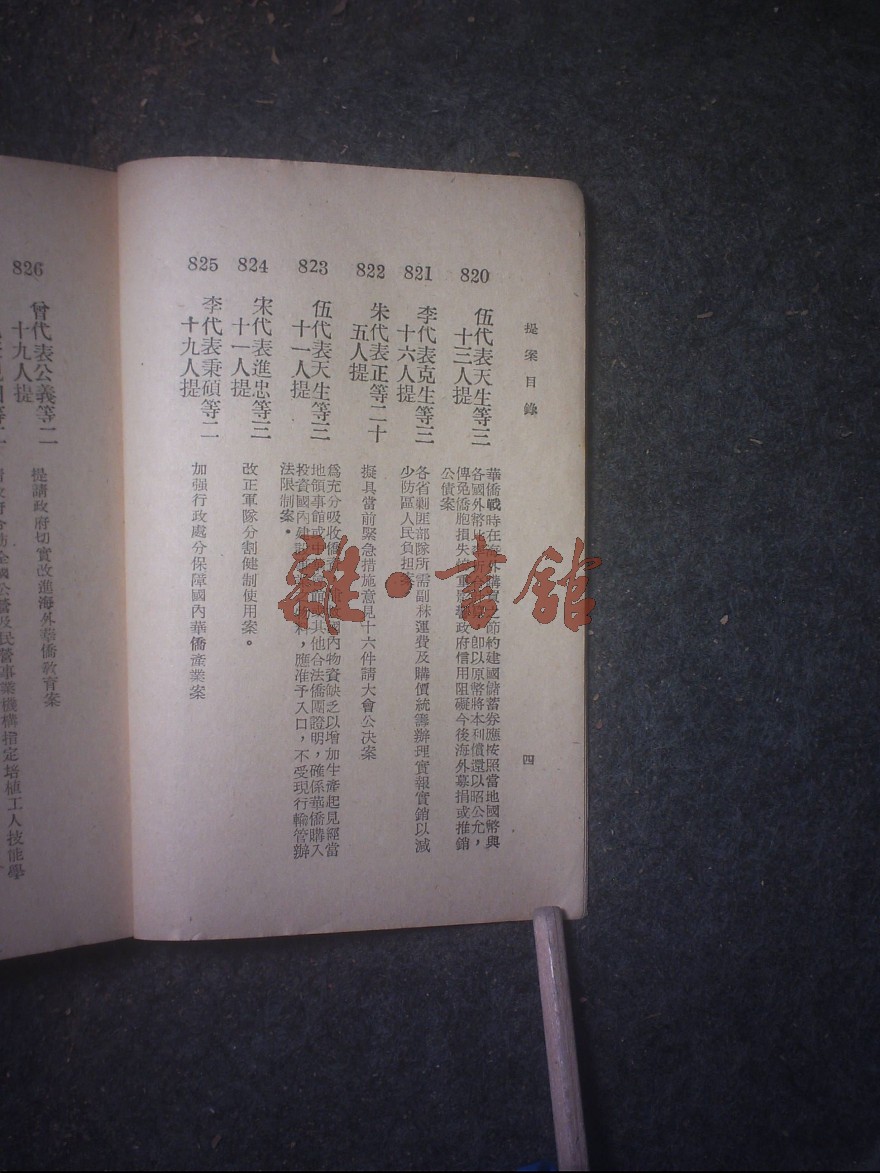 提案目錄
四
820
伍代表天生等三
十三人提
華僑戰時在海外購買之節約建國儲蓄券應按照當地國幣與
各國外幣比
即以原幣將本利償還以昭公允，
俾免僑胞損失
政府信用阻礙今後海外募捐或推銷
公債案
821
李代表克生等三
十六人提
各省剿匪部隊所需副秣運費及購價統籌辦理實報實銷以減
少防區人民負担案
822
朱代表正等二十
五人提
擬具當前緊急措施意見十六件請大會公決案
823
伍代表天生等三
十一人提
爲充分吸收僑
國內物資缺乏以增加生產起見經當
地領事館或中
其他合法僑團證明，確係華僑購入
投資國內建設
料，應准予入口，不受現行輸管辦
法限制案。
824
宋代表進忠等三
十一人提
改正軍隊分割健制使用案。
825
李代表秉碩等二
十九人提
加强行政處分保障國內華僑產業案
826
曾代表公義等二
十九人提
提請政府切實改進海外華僑教育案
公營及民營事業機構指定培植工人技能學
雜·書館